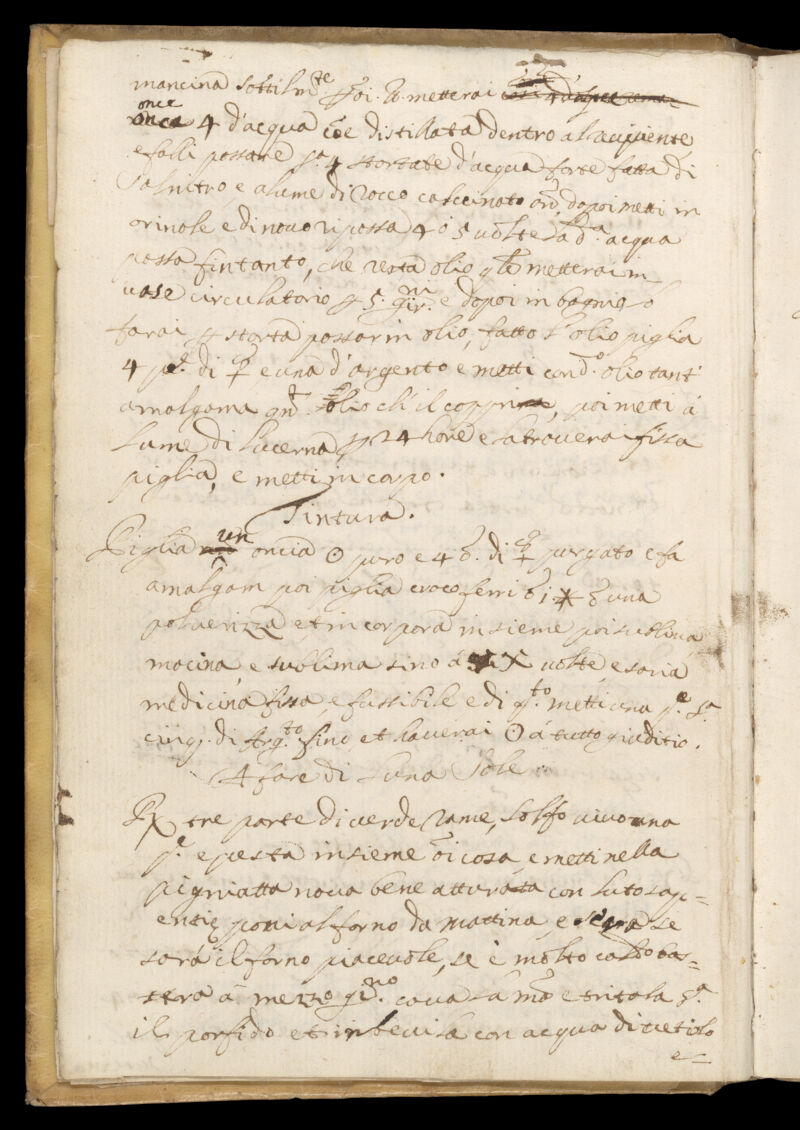 mancina sottilm.te poi li metterai
once
4 d'acqua cõe distillata dentro al recipiente
e falli passare p. 4 stortate d'acqua forte fatta di
Salnitro, e alume di rocco calcinato dopoi metti in
orinale e di novo ripassa 4 ò 5 volte la d.a acqua
passa fin tanto, che resta olio metterai in
vase circulatorio p 5 gir.ni e dopoi in bagnio lo
farai p storta passar in olio, fatto l'olio piglia
4 p.e di ☿ e una d'argento e metti con d.o olio tant'
amalgama olio ch'il copprire, poi metti à
lume di lucerna, p 24 hore e la troverai fissa
piglia, e metti in corpo.
Tintura.
Piglia un oncia ☉ puro e 4 di ☿ purgato e fa
amalgam poi piglia croco ferri una
polverizza et incorpora insieme poi sublima
macina, e sublima sino à X volte, e sarà
medicina fissa, e fussibile e di q.to metti una p.e s.a
cinq. di Arg.to fino et haverai ☉ à tutto giuditio.
A fare di Luna Sole
℞ tre parte di verde rame, solfo vivo una
p.e e pesta insieme cosa, e metti nella
pigniatta nova bene atturata con luto sap=
entię poni al forno da mattina, e se
sarà il forno piacevole, se è molto caldo bas=
terà à mezzo gi.no cava la mã e tritola s.a
il porfido et inbevila con acqua di vetiolo
e=